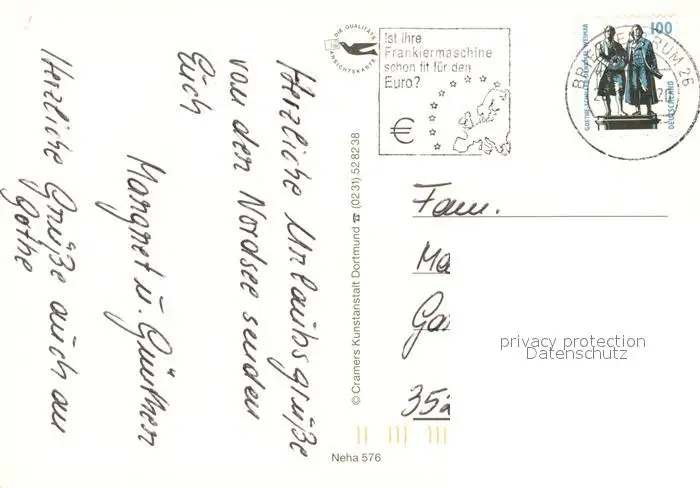 Herzliche Urlaubsgrüße
von der Nordsee senden
Euch
Margret u. Günther
Herzliche Grüße auch an
Gothe
DIE QUALITÄTS
ANSICHTSKARTE
Ist Ihre
Frankiermaschine
schon fit für den
Euro?
€
BRIEFZENTRUM 26
100
GOETHE-SCHILLER-DENKMAL WEIMAR
DEUTSCHLAND
© Cramers Kunstanstalt Dortmund ☎ (0231) 528238
Fam.
Ma
Ga
35
privacy protection
Datenschutz
Neha 576